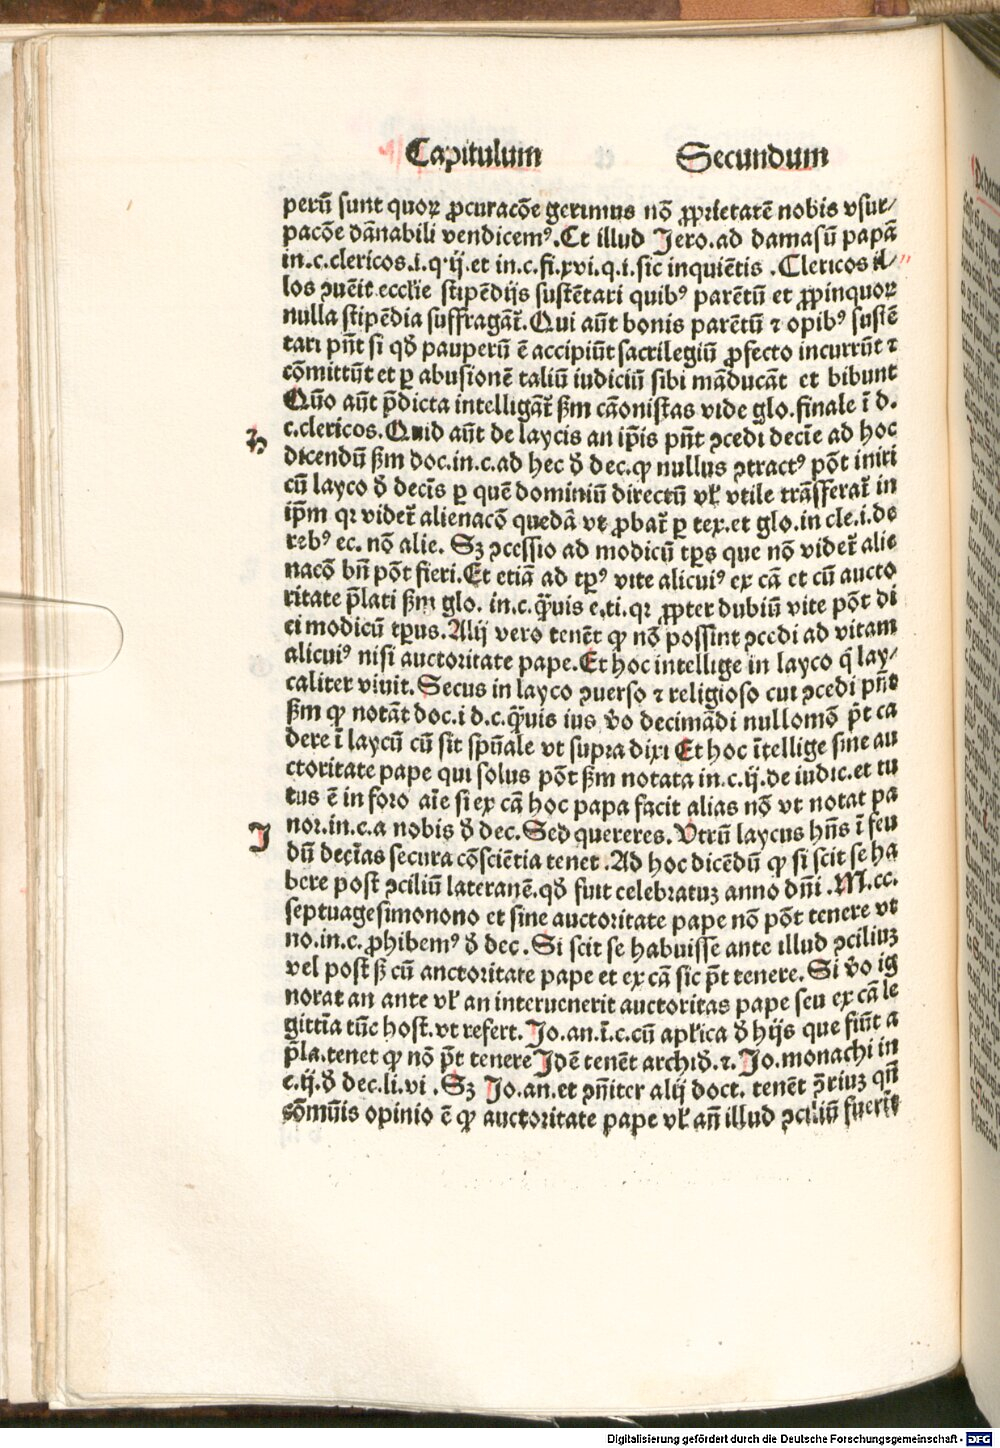 Capitulum Secundum
perū sunt quoꝝ ꝓcuracōe gerimus nō ꝓprietatē nobis vsur/
pacōe dānabili vendicemꝰ. Et illud Jero. ad damasū papā
in.c.clericos.i.q.ij.et in.c.fi.xvi.q.i.sic inquiētis .Clericos il/
los ꝯuēit eccl'ie stipēdijs sustētari quibꝰ parētū et ꝓpinquoꝝ
nulla stipēdia suffragāt᷑. Qui aūt bonis parētū ⁊ opibꝰ sustē
tari pn̄t si qd̄ pauperū ē accipiūt sacrilegiū ꝓfecto incurrūt ⁊
cōmittūt et ꝑ abusionē taliū iudiciū sibi māducāt et bibunt
Qūo aūt p̄dicta intelligāt᷑ ẜm cāonistas vide glo.finale ī d.
c.clericos. Quid aūt de laycis an ip̄is pn̄t ꝯcedi decīe ad hoc
H
dicendū ẜm doc.in.c.ad hec d̄ dec.ꝙ nullus ꝯtractꝰ pōt iniri
cū layco d̄ decīs ꝑ quē dominiū directū vl' vtile trāsferat᷑ in
ip̄m qꝛ videt᷑ alienacō quedā vt ꝓbat᷑ ꝑ tex.et glo.in cle.i.de
rebꝰ ec. nō alie. Sꝫ ꝯcessio ad modicū tp̄s que nō videt᷑ alie
nacō bn̄ pōt fieri. Et etiā ad tp̄ꝰ vite alicuiꝰ ex cā et cū aucto
ritate p̄lati ẜm glo. in.c.q̄uis e.ti.qꝛ ꝓpter dubiū vite pōt di
ci modicū tp̄us. Alij vero tenēt ꝙ nō possint ꝯcedi ad vitam
alicuiꝰ nisi auctoritate pape. Et hoc intellige in layco q̄ lay/
caliter viuit. Secus in layco ꝯuerso ⁊ religioso cui ꝯcedi pn̄t
ẜm ꝙ notāt doc.i d.c.q̄uis ius v̄o decimādi nullomō p̄t ca
dere ī laycū cū sit spn̄ale vt supra dixi Et hoc ītellige sine au
ctoritate pape qui solus pōt ẜm notata in.c.ij.de iudic.et tu
tus ē in foro aīe si ex cā hoc papa facit alias nō vt notat pa
J
nor.in.c.a nobis d̄ dec. Sed quereres. Vtrū laycus hn̄s ī feu
dū decīas secura cōsciētia tenet . Ad hoc dicēdū ꝙ si scit se ha
bere post ꝯciliū lateranē.qd̄ fuit celebratuꝫ anno dn̄i .M.cc.
septuagesimonono et sine auctoritate pape nō pōt tenere vt
no.in.c. ꝓhibemꝰ d̄ dec . Si scit se habuisse ante illud ꝯciliuꝫ
vel post sꝫ cū anctoritate pape et ex cā sic p̄t tenere. Si v̄o ig
norat an ante vl' an interuenerit auctoritas pape seu ex cā le
gittīa tūc host. vt refert. Jo.an.ī.c.cū apl'ica d̄ hijs que fiūt a
p̄la.tenet ꝙ nō p̄t tenere Jdē tenēt archid̄.⁊. Jo.monachi in
c.ij.d̄ dec.li.vi . Sꝫ Jo.an.et ꝯn̄iter alij doct. tenēt ꝯ̄riuꝫ qn̄
cōmūis opinio ē ꝙ auctoritate pape vl' an̄ illud ꝯciliū fuerīt
Digitalisierung gefördert durch die Deutsche Forschungsgemeinschaft - DFG